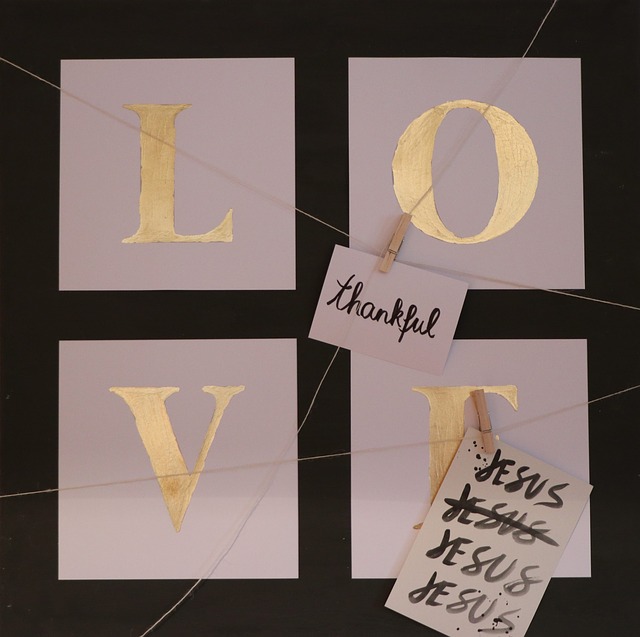 L O
thankful
V E
JESUS
JESUS
JESUS
JESUS